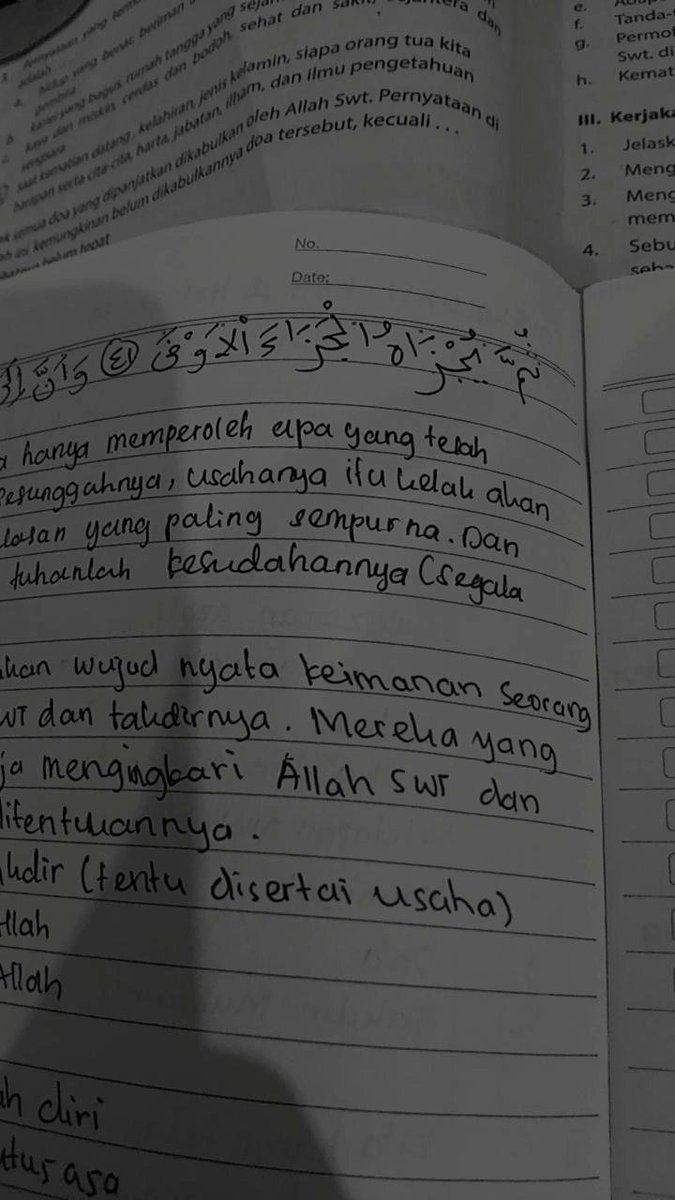 3. Pernyataan yang
adalah
a. hidup yang benar, beriman
gembira
b. karier yang bagus, rumah tangga yang
c. kaya dan miskin, cerdas dan bodoh, sehat dan sakit, dan
sengsara
saat kematian datang, kelahiran, jenis kelamin, siapa orang tua kita
harapan serta cita-cita, harta, jabatan, ilham, dan ilmu pengetahuan
semua doa yang dipanjatkan dikabulkan oleh Allah Swt. Pernyataan di
ini kemungkinan belum dikabulkannya doa tersebut, kecuali . . .
belum tepat
e.
f. Tanda-
g. Permo
Swt. di
h. Kemat
III. Kerjaka
1. Jelask
2. Meng
3. Meng
mem
4. Sebu
No.
Date:
ثُمَّ يُجْزَاهُ الْجَزَاءَ الْأَوْفَىٰ (٤١) وَأَنَّ إِلَىٰ
hanya memperoleh apa yang telah
Sesunggahnya, usahanya itu kelak akan
lasan yang paling sempurna. Dan
tuhanlah kesudahannya (segala
kan wujud nyata keimanan seorang
WT dan takdirnya. Mereka yang
ja mengingkari Allah SWT dan
ditentukannya.
akdir (tentu disertai usaha)
Allah
Allah
ah diri
utus asa